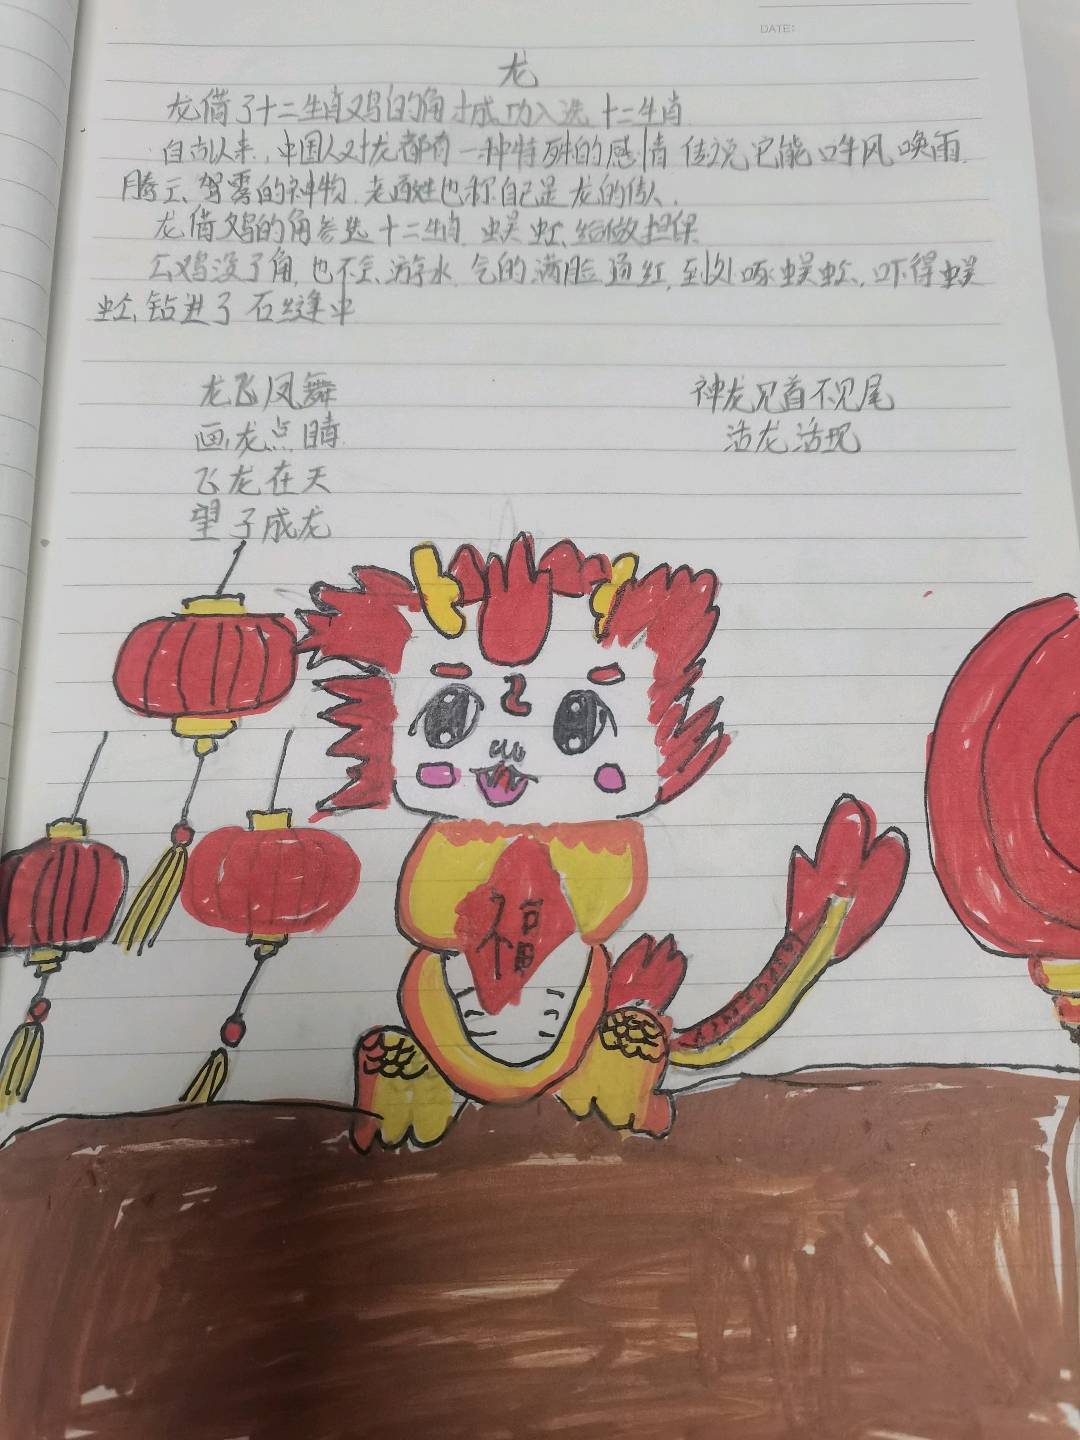 DATE:
龙
龙借了十二生肖鸡的角才成功入选十二生肖
自古以来,中国人对龙都有一种特殊的感情 传说它能呼风唤雨.
腾云驾雾的神物.老百姓也称自己是龙的传人.
龙借鸡的角参选十二生肖.蜈蚣给做担保
公鸡没了角,也不会游水.气的满脸通红,到处啄蜈蚣,吓得蜈
蚣钻进了石缝中
龙飞凤舞 神龙见首不见尾
画龙点睛 活龙活现
飞龙在天
望子成龙
福